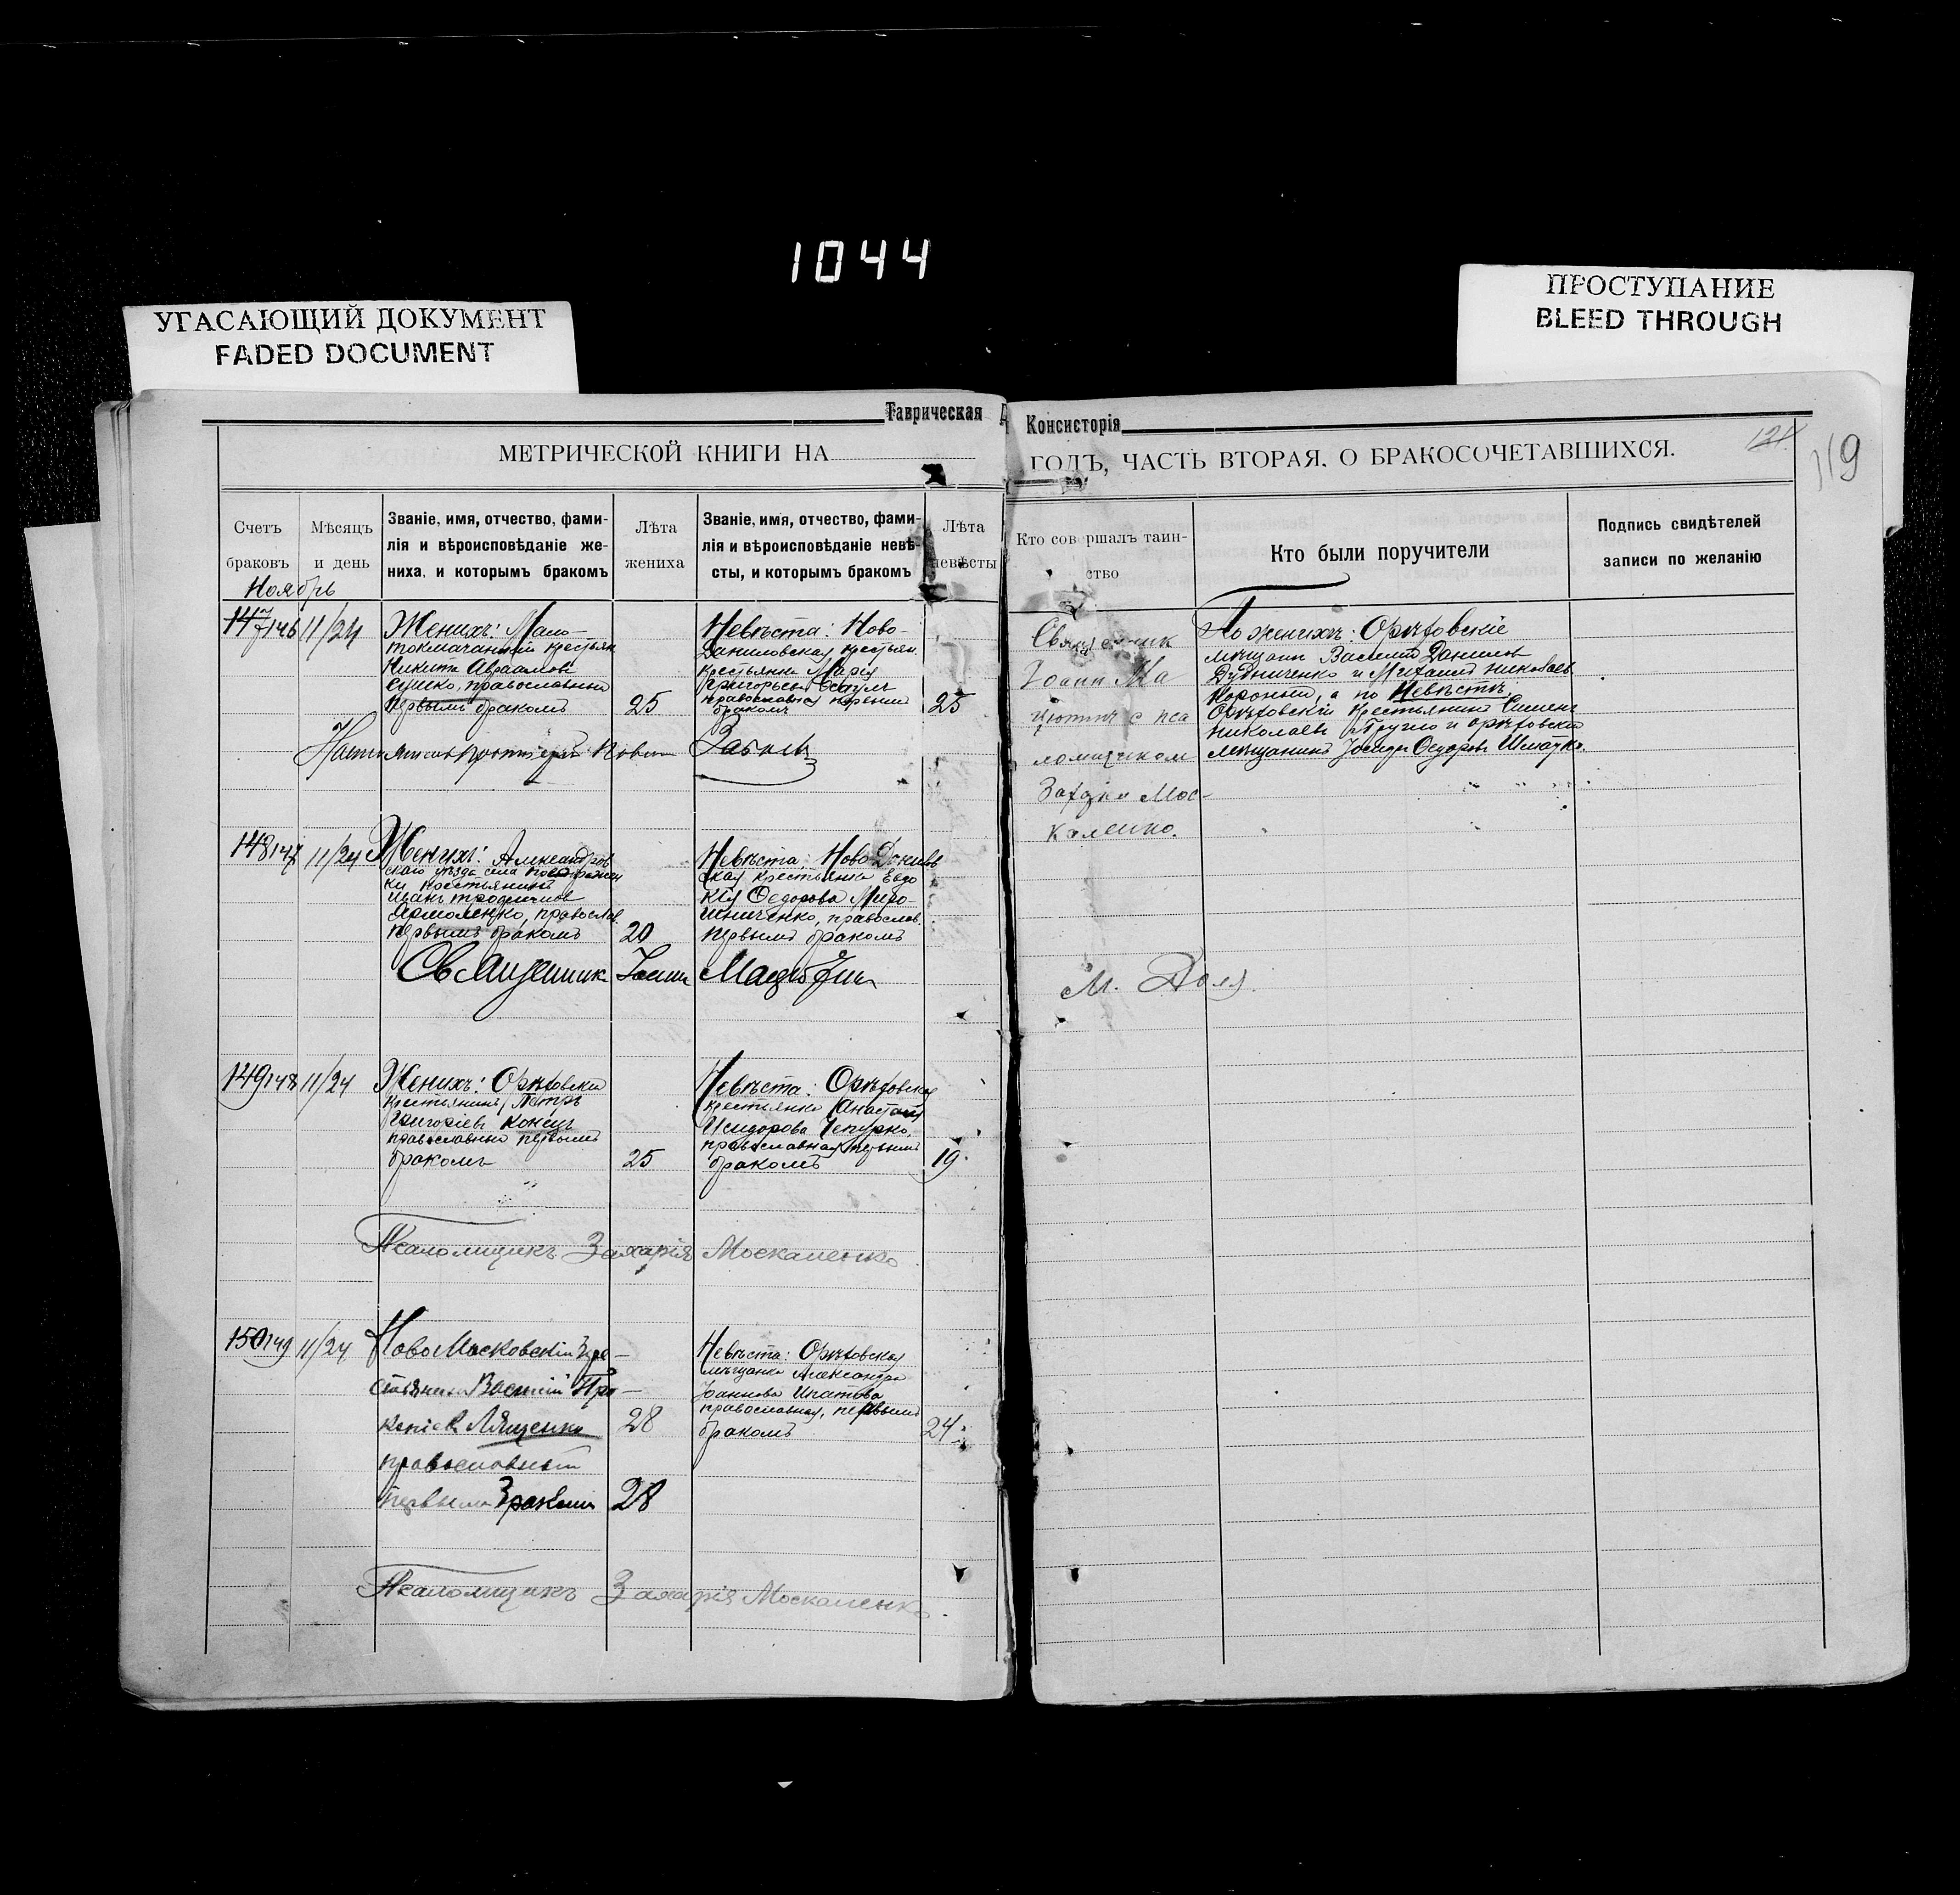 1044
УГАСАЮЩИЙ ДОКУМЕНТ
FADED DOCUMENT
ПРОСТУПАНИЕ
BLEED THROUGH
Таврическая Консисторія
МЕТРИЧЕСКОЙ КНИГИ НА ГОДЪ, ЧАСТЬ ВТОРАЯ, О БРАКОСОЧЕТАВШИХСЯ.
121
119
Счетъ браковъ
Мѣсяцъ и день
Званіе, имя, отчество, фами-
лія и вѣроисповѣданіе же-
ниха, и которымъ бракомъ
Лѣта жениха
Званіе, имя, отчество, фами-
лія и вѣроисповѣданіе невѣ-
сты, и которымъ бракомъ
Лѣта невѣсты
Кто совершалъ таин-
ство
Кто были поручители
Подпись свидѣтелей
записи по желанію
Ноябрь
147 146
11/24
Женихъ: Мало-
токмачанскій крестьян
Никита Авраамовъ
православный
первымъ бракомъ
25
Невѣста: Ново-
Даниловская крестьян.
крестьянка Марія
Григорьева
православная первымъ
бракомъ
25
Священник
Іоанн Ма
цютинъ с пса
ломщиком
Захарія Мос-
каленко.
По женихѣ: Орѣховскіе
мѣщане Василій Даниловъ
Дудниченко и Михаилъ Николаев
а по Невѣстѣ
Орѣховскій крестьянинъ Симеонъ
Николаевъ и орѣховскій
мѣщанинъ Ѳедоровъ
148 147
11/24
Женихъ: Александров
скаго уѣзда села
ки крестьянинъ
Иванъ Трофимовъ
Ярмоленко, православ.
первымъ бракомъ
20
Невѣста: Ново Данилов
ская крестьянка Евдо
кія Ѳедорова Миро-
шниченко, православ.
первымъ бракомъ
Священник Іоанн
149 148
11/24
Женихъ: Орѣховскій
крестьянинъ Петръ
Григоріевъ
православный первымъ
бракомъ
25
Невѣста: Орѣховская
крестьянка Анастасія
Исидорова Чепурко,
православная первымъ
бракомъ
19
Псаломщикъ Захарія Москаленко
150 149
11/24
НовоМосковскій кре-
стьянинъ Василій Про-
копіев Лященко
православный
первымъ бракомъ
28
28
Невѣста: Орѣховская
мѣщанка Александра
Іоаннова Ипатова
православная, первымъ
бракомъ
24
Псаломщикъ Захарія Москаленко.